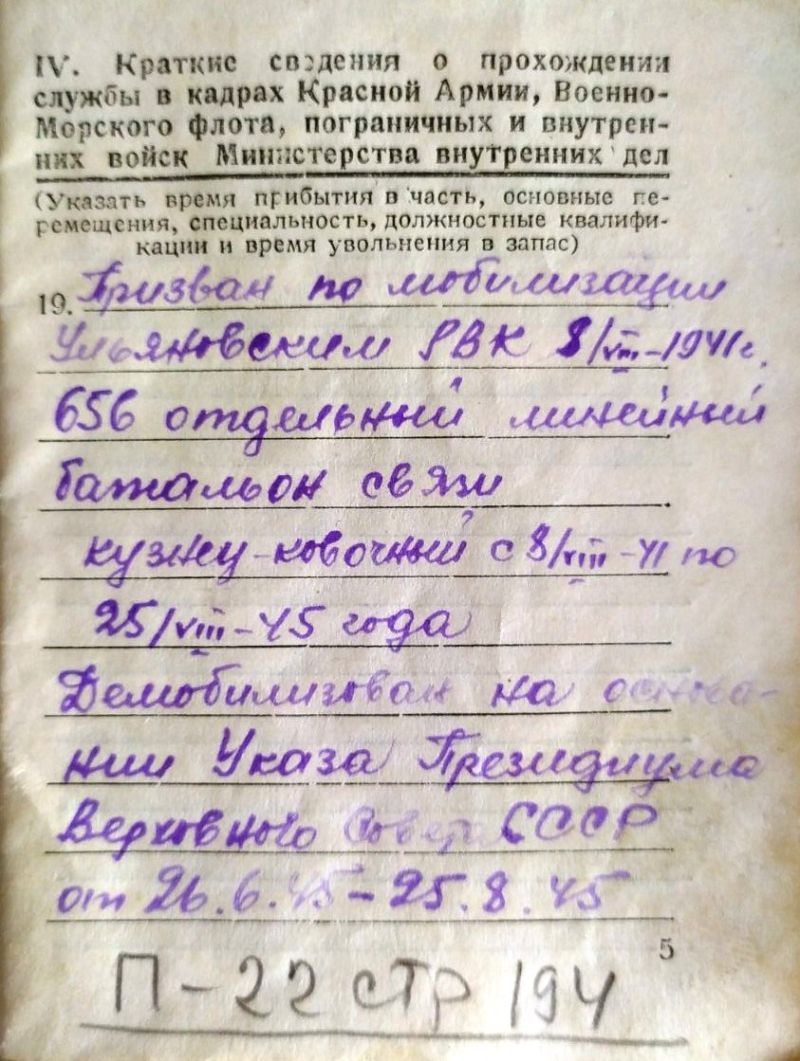 IV. Краткие сведения о прохождении
службы в кадрах Красной Армии, Военно-
Морского флота, пограничных и внутрен-
них войск Министерства внутренних дел
(Указать время прибытия в часть, основные пе-
ремещения, специальность, должностные квалифи-
кации и время увольнения в запас)
19. Призван по мобилизации
Ульяновским РВК 8/VIII-1941г.
656 отдельный линейный
батальон связи
ковочный с 8/VIII-41 по
25/VIII-45 года
Демобилизован на основа-
нии Указа Президиума
Верховного Совета СССР
от 26.6.45-25.8.45
5
П-22 стр 194